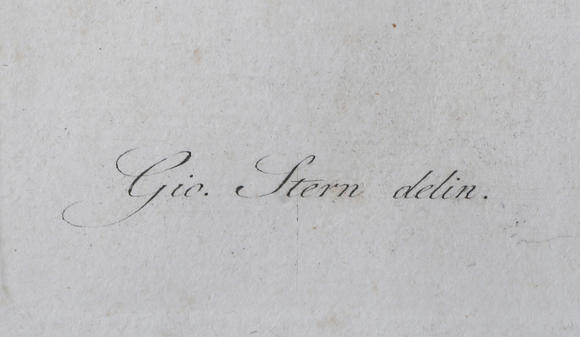 Gio. Stern delin.